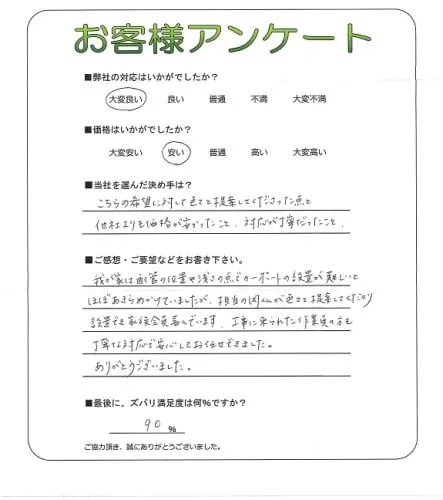 お客様アンケート
■弊社の対応はいかがでしたか?
大変良い 良い 普通 不満 大変不満
■価格はいかがでしたか?
大変安い 安い 普通 高い 大変高い
■当社を選んだ決め手は?
こちらの希望に対して色々と提案してくださった点と
他社よりも価格が安かったこと、対応が丁寧だったこと、
■ご感想・ご要望などをお書き下さい。
我が家は配管の位置や浅さの点でカーポートの設置が難しいと
ほぼあきらめかけていましたが、担当の くんが色々と提案してくださり
設置でき家族全員喜んでいます。工事に来られた作業員の方も
丁寧な対応で安心してお任せできました。
ありがとうございました。
■最後に、ズバリ満足度は何%ですか?
90 %
ご協力頂き、誠にありがとうございました。